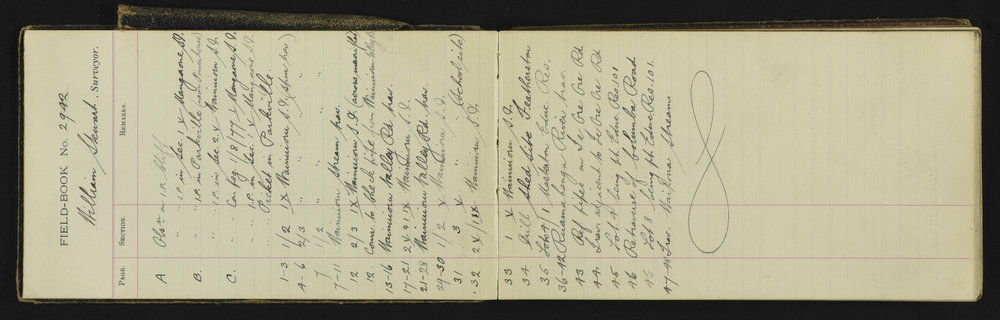 FIELD-BOOK No. 2942
William Stewart, Surveyor.
PAGE. SECTION. REMARKS.
A Obsn on I.P.
" I.P. in Sec. 1 V Mangaone S.D.
B. " I.P. in Parkville
" I.P. in Sec. 2 V Wainuioru S.D.
C. " on Peg 1/8177 Mangaone S.D.
" I.P. in Sec. 1 V Mangaone S.D.
" Picket in Parkville.
1-3 1/2 IX Wainuioru S.D.
4-6 2/3 " "
7 1/2 " "
7-11 Wainuioru Stream trav.
12 2/3 IX Wainuioru S.D.
12 Conn. to check pipe from Wainuioru
13-16 Wainuioru Valley Rd trav.
17-21 2 & 1 IX Wainuioru S.D.
21-28 Wainuioru Valley Rd. trav.
29-30 1/2 V Wainuioru S.D.
31 3 V " (School site)
32 2 V/IX Wainuioru S.D.
33 1 V Wainuioru S.D.
34 Drill Shed Site Featherston
35 Masterton Educ. Res.
36-42 Ruamahanga River trav.
43 Ref pipes on Te Ore Ore Rd
44 Trav adjacent to Te Ore Ore Rd
45 Lot 4 being pt. Educ. Res. 101
46 Retraverse of Columba Road
45 Lot 8 being pt. Educ. Res. 101.
47-48 Trav. Waipoua Streams